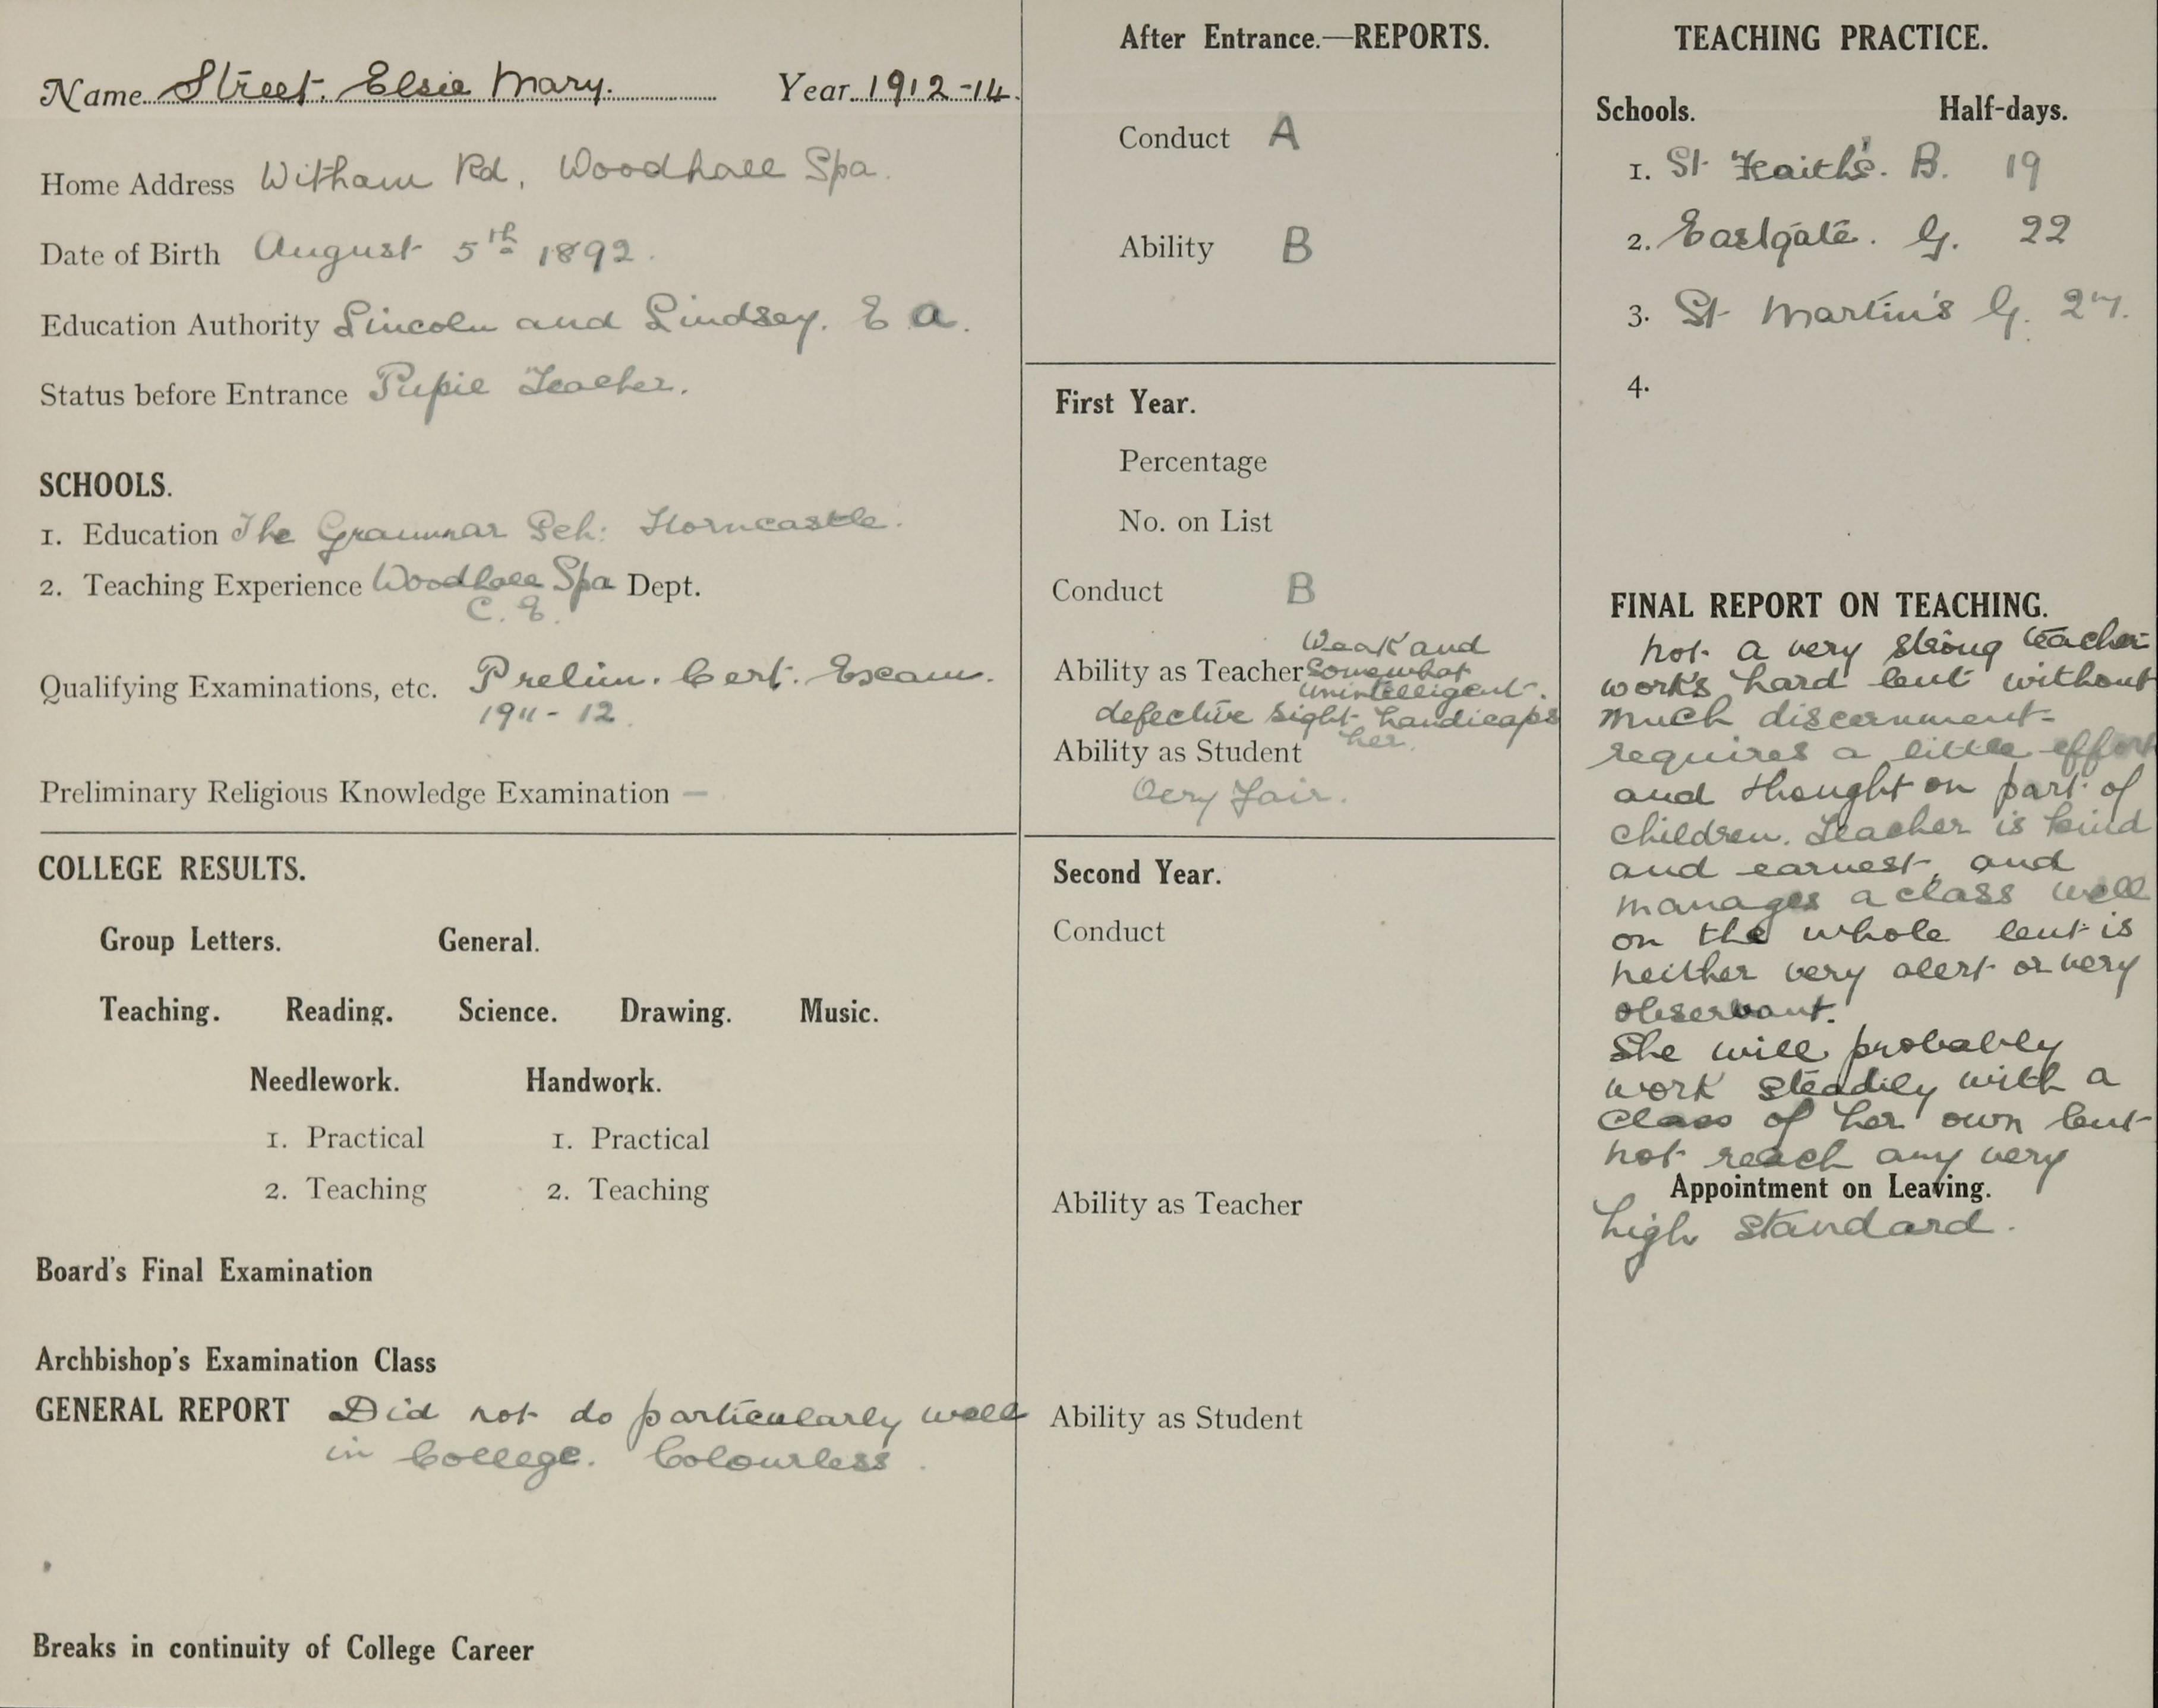 Name Street. Elsie Mary. Year 1912-14.
Home Address Witham Rd, Woodhall Spa.
Date of Birth August 5th 1892.
Education Authority Lincoln and Lindsey. E A.
Status before Entrance Pupil Teacher.
SCHOOLS.
1. Education The Grammar Sch: Horncastle.
2. Teaching Experience Woodhall Spa Dept.
C. E.
Qualifying Examinations, etc. Prelim. Cert. Exam.
1911-12.
Preliminary Religious Knowledge Examination —
COLLEGE RESULTS.
Group Letters. General.
Teaching. Reading. Science. Drawing. Music.
Needlework. Handwork.
1. Practical 1. Practical
2. Teaching 2. Teaching
Board's Final Examination
Archbishop's Examination Class
GENERAL REPORT Did not do particularly well
in College. Colourless.
Breaks in continuity of College Career
After Entrance.—REPORTS.
Conduct A
Ability B
First Year.
Percentage
No. on List
Conduct B
Weak and
Ability as Teacher somewhat
unintelligent.
defective sight handicaps
her.
Ability as Student
Very Fair.
Second Year.
Conduct
Ability as Teacher
Ability as Student
TEACHING PRACTICE.
Schools. Half-days.
1. St Faith's. B. 19
2. Eastgate. G. 22
3. St Martin's G. 27.
4.
FINAL REPORT ON TEACHING.
not a very strong teacher
works hard but without
much discernment-
requires a little effort
and thought on part of
children. Teacher is kind
and earnest, and
manages a class well
on the whole but is
neither very alert or very
observant.
She will probably
work steadily with a
class of her own but
not reach any very
Appointment on Leaving.
high standard.